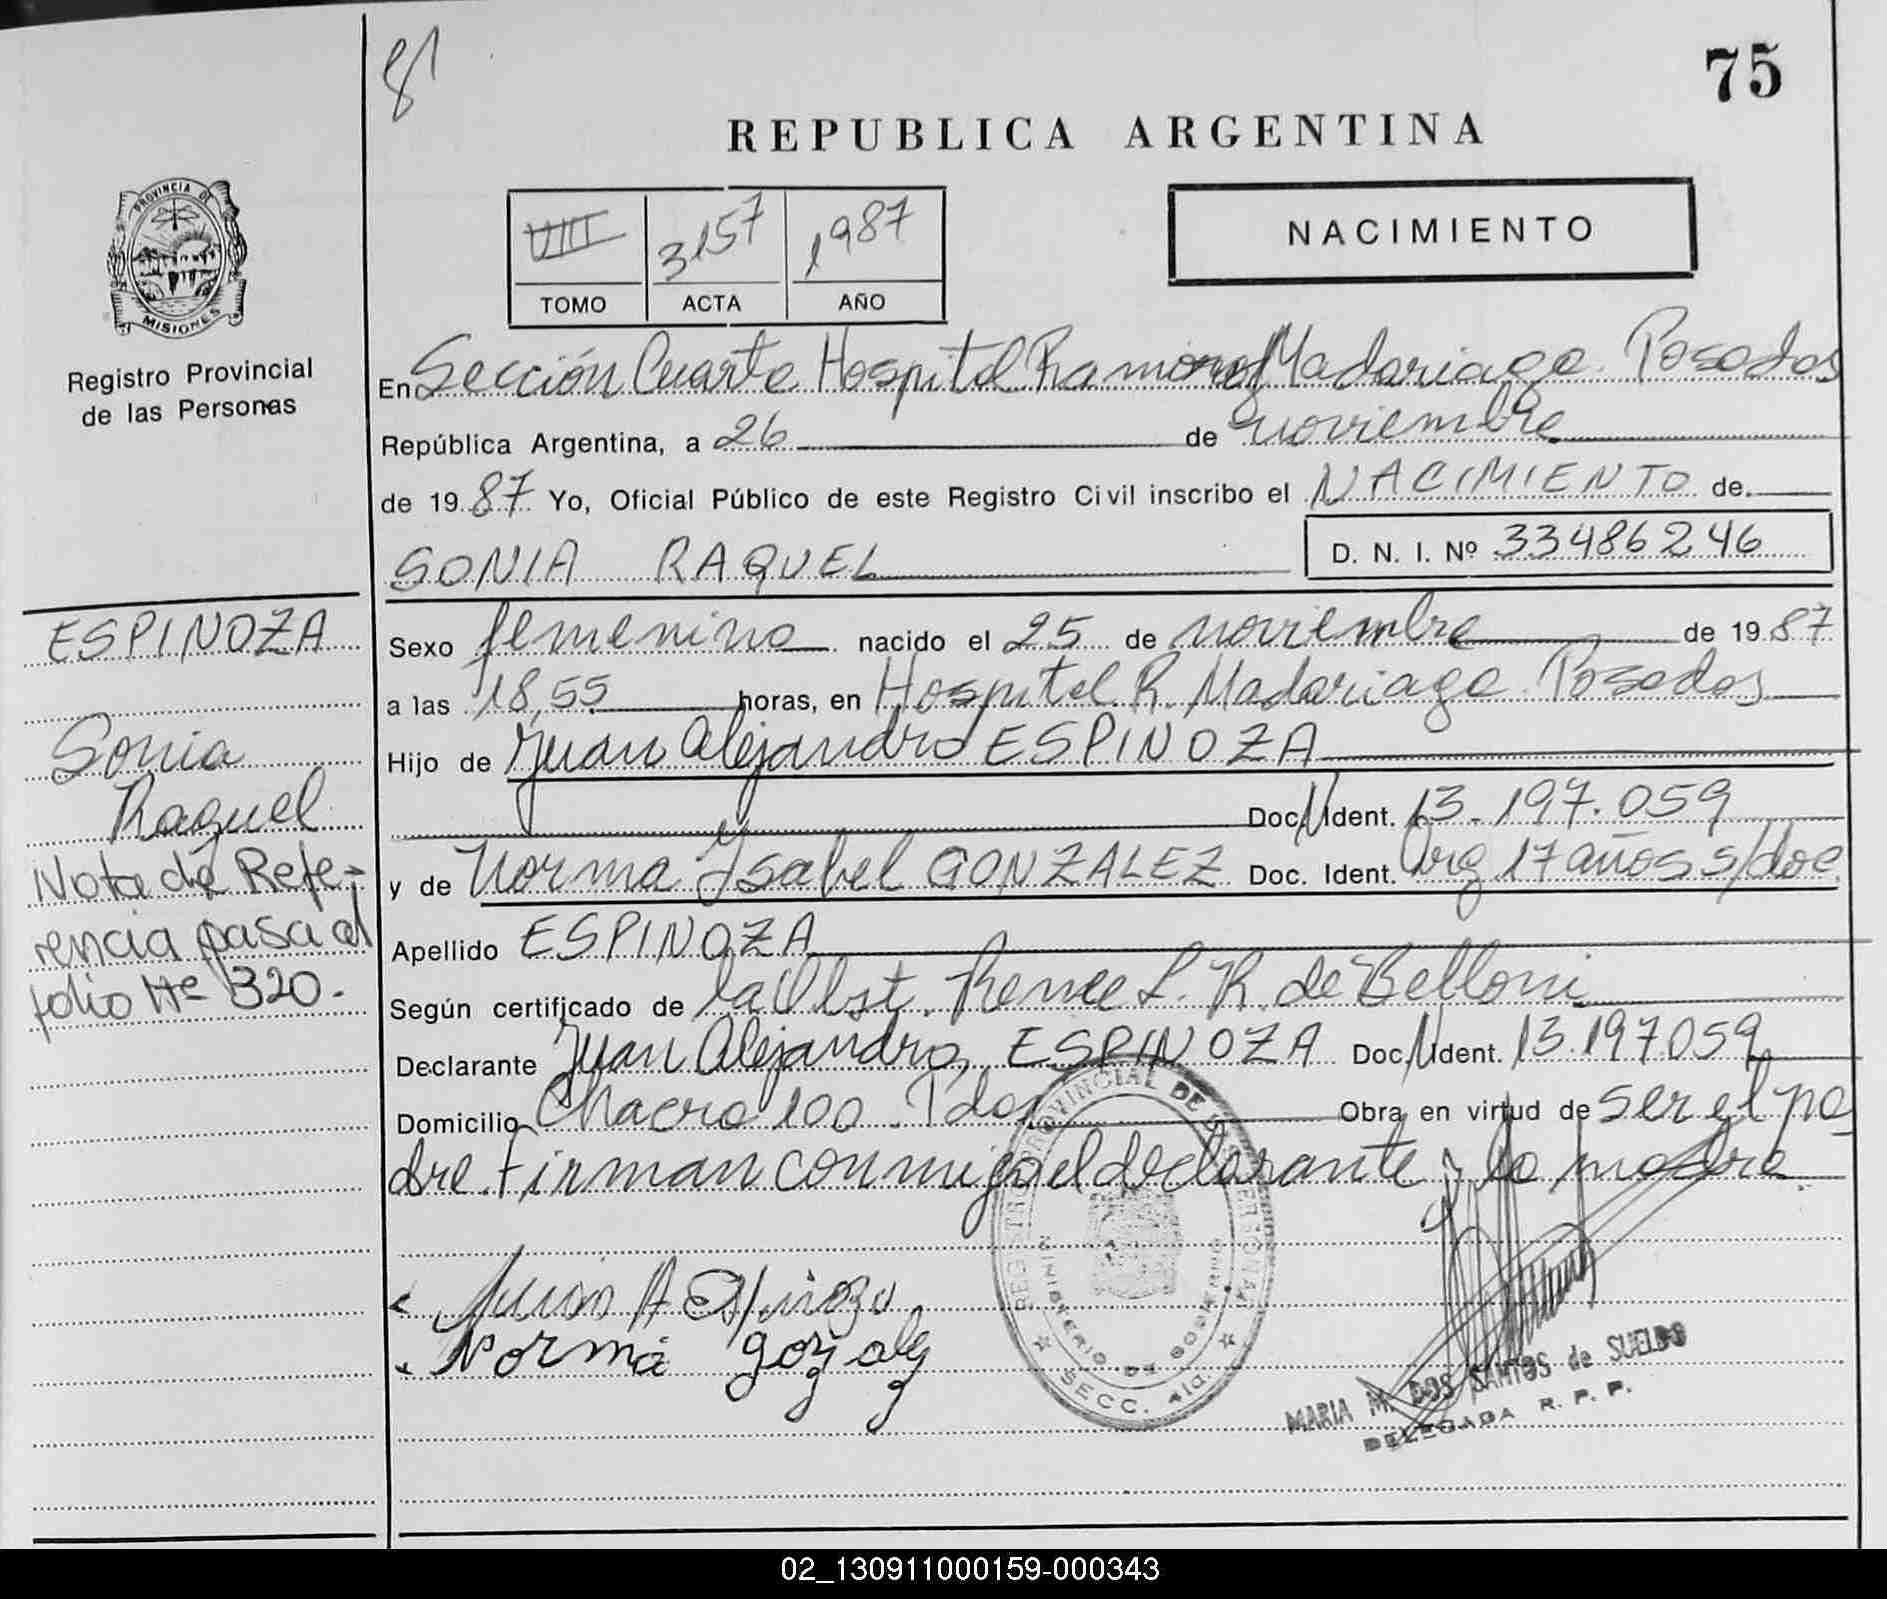 81
75
REPUBLICA ARGENTINA
PROVINCIA DE
MISIONES
Registro Provincial
de las Personas
VIII 3157 1987
TOMO ACTA AÑO
NACIMIENTO
En Sección Cuarta Hospital Ramón Madariaga. Posadas
República Argentina, a 26 de noviembre
de 19 87 Yo, Oficial Público de este Registro Civil inscribo el NACIMIENTO de
SONIA RAQUEL D. N. I. Nº 33486246
ESPINOZA
Sonia
Raquel
Nota de Refe-
rencia pasa al
folio Nº 320.
Sexo femenino nacido el 25 de noviembre de 19 87
a las 18,55 horas, en Hospital R. Madariaga. Posadas
Hijo de Juan Alejandro ESPINOZA
Doc. Ident. 13.197.059
y de Norma Ysabel GONZALEZ Doc. Ident. Arg 17 años s/doc.
Apellido ESPINOZA
Según certificado de la Obst. Renee L. R. de Belloni
Declarante Juan Alejandro ESPINOZA Doc. Ident. 13.197.059
Domicilio Chacra 100. Pdas Obra en virtud de ser el pa
dre. Firman conmigo el declarante y la madre.
Juan A Espinoza
Norma gozalez
REGISTRO PROVINCIAL DE LAS PERSONAS
MINISTERIO DE GOBIERNO
SECC. 4ta.
MARIA M. DOS SANTOS de SUELDO
DELEGADA R. P. P.
02_130911000159-000343